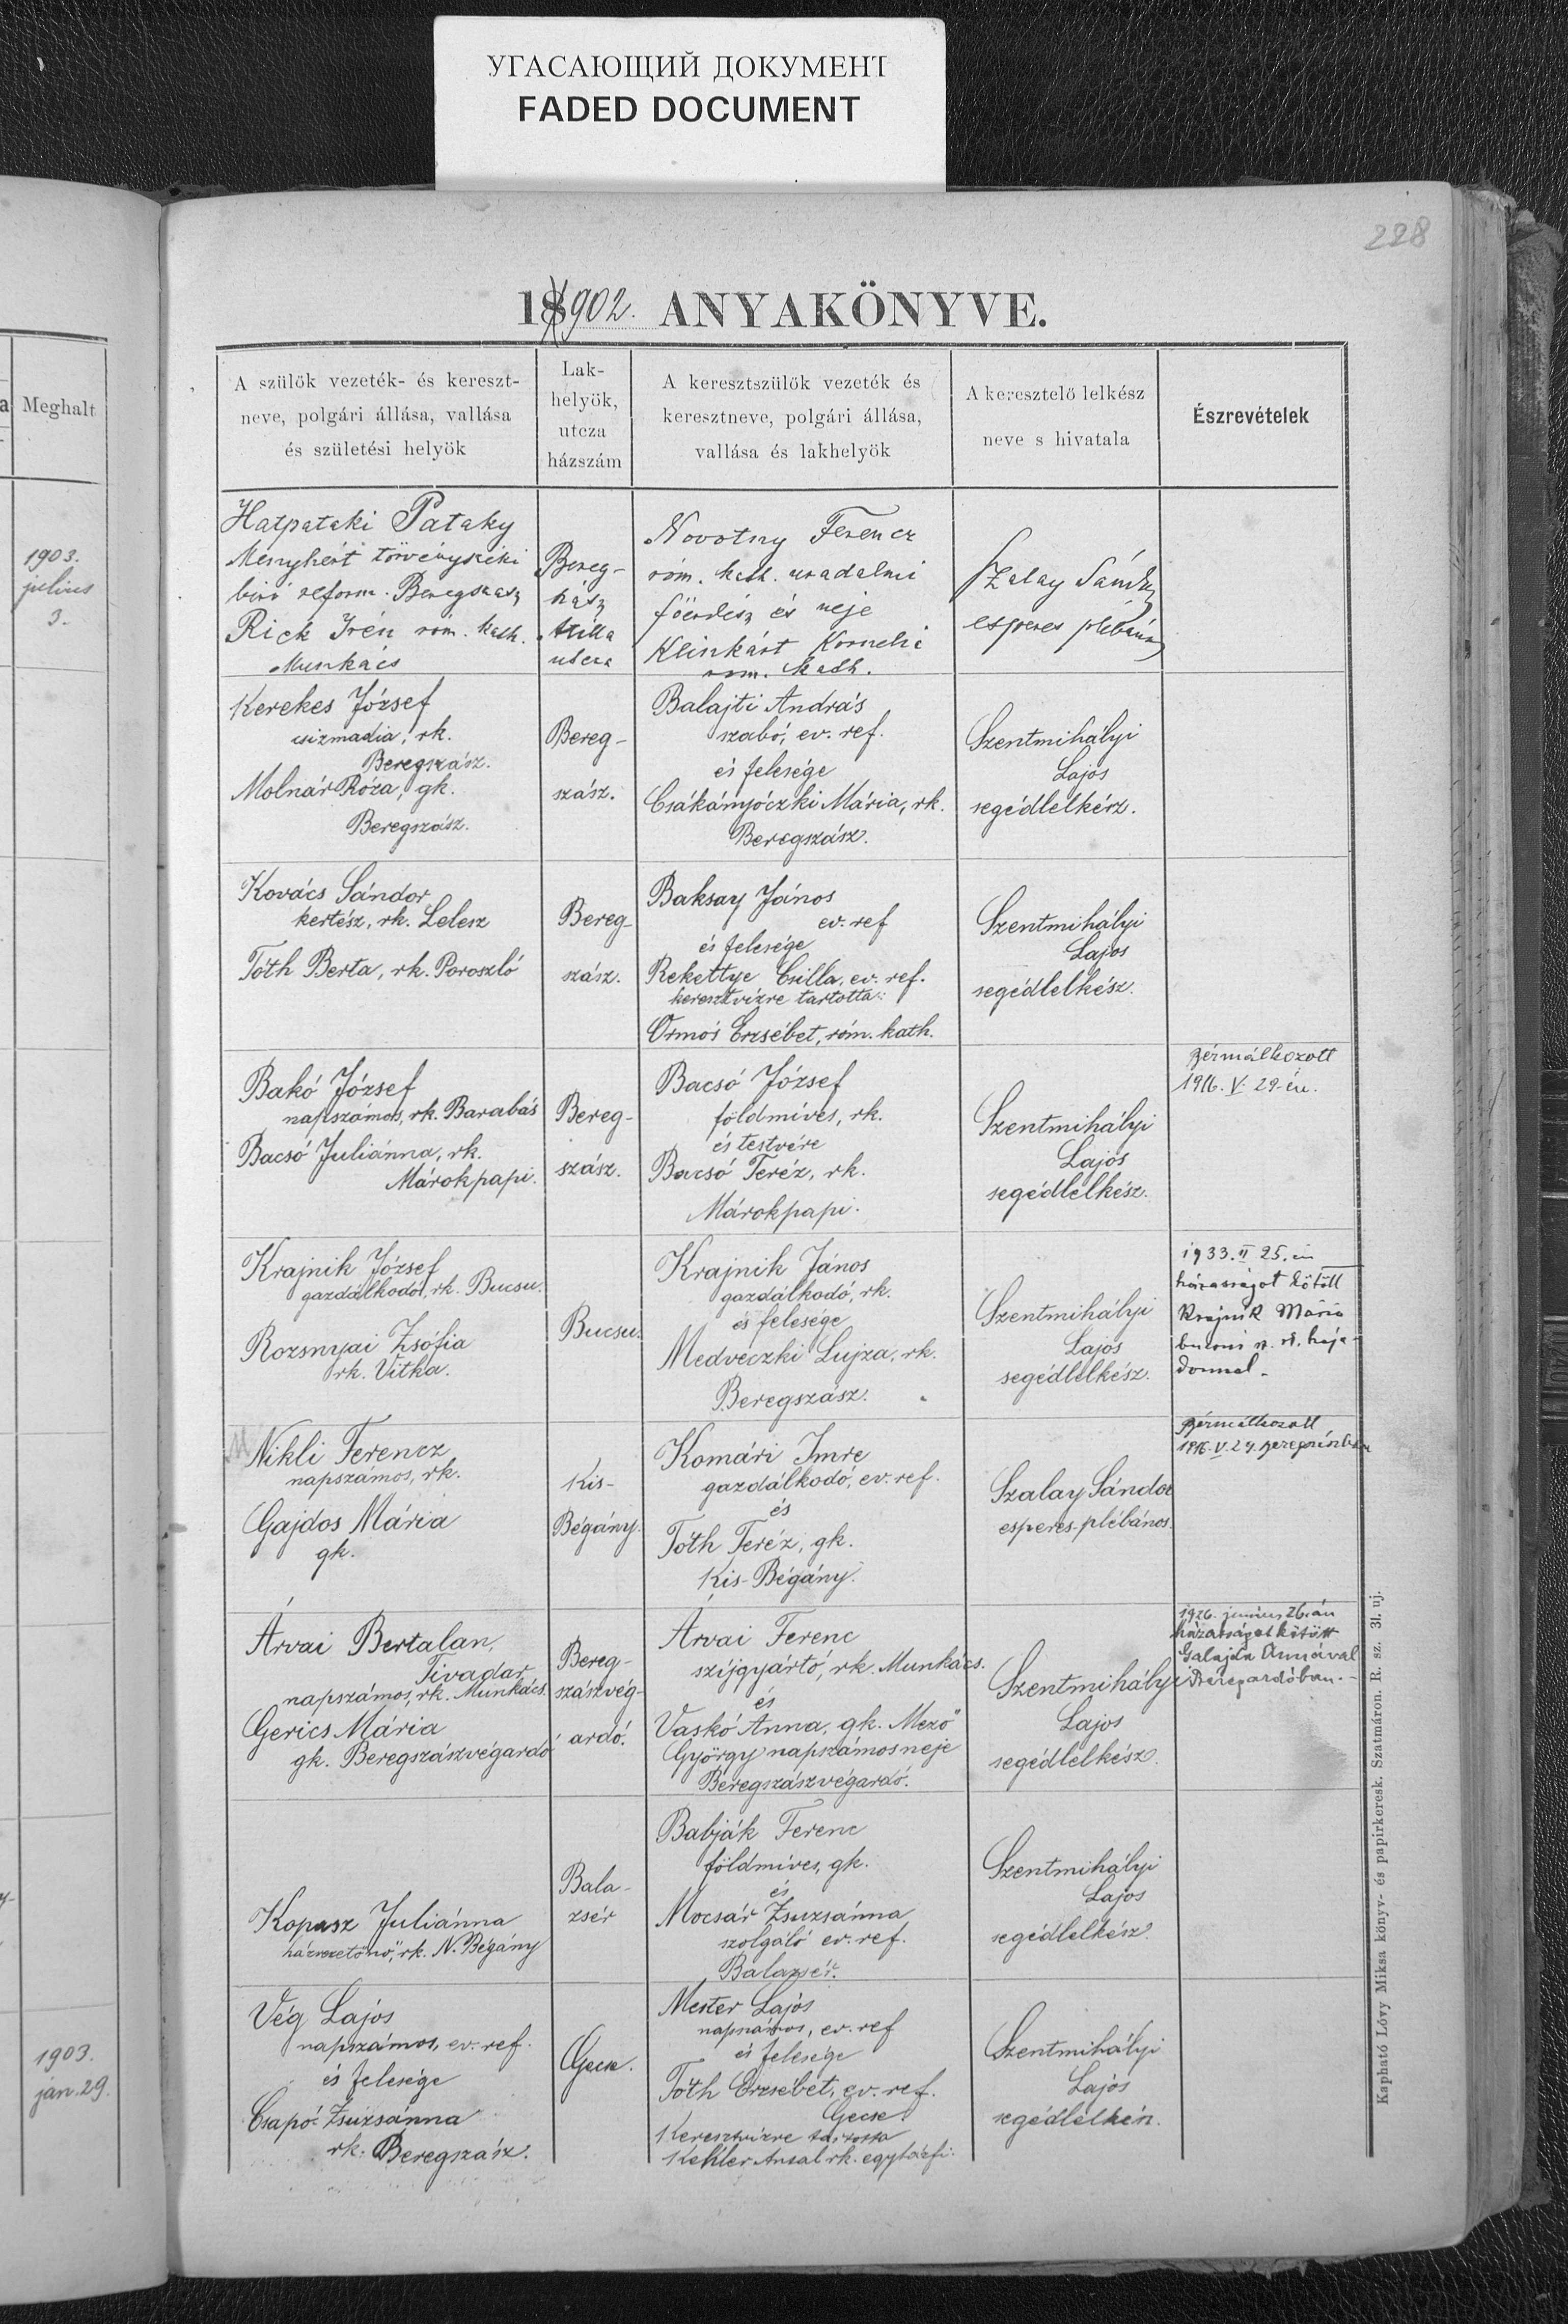 УГАСАЮЩИЙ ДОКУМЕНТ
FADED DOCUMENT
228
18902. ANYAKÖNYVE.
a Meghalt
1903.
julius
3.
1903.
jan. 29.
A szülők vezeték- és kereszt-
neve, polgári állása, vallása
és születési helyök
Lak-
helyök,
utcza
házszám
A keresztszülők vezeték és
keresztneve, polgári állása,
vallása és lakhelyök
A keresztelő lelkész
neve s hivatala
Észrevételek
Hatpataki Pataky
Menyhért törvényszéki
biró reform. Beregszász
Rick Irén róm. kath.
Munkács
Bereg-
hász
Atilla
utcza
Novotny Ferencz
róm. kath. uradalmi
főerdész és neje
Klinkárt Kornelia
rom. kath.
Szalay Sándor
esperes plébános
Kerekes József
csizmadia, rk.
Beregszász.
Molnár Róza, gk.
Beregszász.
Bereg-
szász.
Balajti András
szabó, ev. ref.
és felesége
Csákányóczki Mária, rk.
Beregszász.
Szentmihályi
Lajos
segédlelkész.
Kovács Sándor
kertész, rk. Lelesz
Tóth Berta, rk. Poroszló
Bereg-
szász.
Baksay János
ev. ref
és felesége
Rekettye Csilla, ev. ref.
keresztvizre tartotta:
Ormós Erzsébet, róm. kath.
Szentmihályi
Lajos
segédlelkész.
Bakó József
napszámos, rk. Barabás
Bacsó Juliánna, rk.
Márokpapi.
Bereg-
szász.
Bacsó József
földmíves, rk.
és testvére
Bacsó Teréz, rk.
Márokpapi.
Szentmihályi
Lajos
segédlelkész.
Bérmálkozott
1916. V. 29-én.
Krajnik József
gazdálkodó, rk. Bucsu.
Rozsnyai Zsófia
rk. Vitka.
Bucsu.
Krajnik János
gazdálkodó, rk.
és felesége
Medveczki Lujza, rk.
Beregszász.
Szentmihályi
Lajos
segédlelkész.
1933. II 25. én
házasságot kötött
Krajnik Mária
bucsui r. k. haja-
donnal.
Nikli Ferencz
napszámos, rk.
Gajdos Mária
gk.
Kis-
Bégány.
Komári Imre
gazdálkodó, ev. ref.
és
Tóth Teréz, gk.
Kis-Bégány.
Szalay Sándor
esperes-plébános.
Bérmálkozott
1916. V. 29. Beregszászban
Árvai Bertalan,
Tivadar
napszámos, rk. Munkács.
Gerics Mária
gk. Beregszászvégardó
Bereg-
szászvég-
ardó.
Árvai Ferenc
szíjgyártó, rk. Munkács.
és
Vaskó Anna, gk. Mező
György napszámos neje
Beregszászvégardó.
Szentmihályi
Lajos
segédlelkész.
1926. junius 26.án
házasságot kötött
Galajda Annával
Beregardóban.-
Kopasz Juliánna
házvezetőnő, rk. N. Bégány
Bala-
zsér
Babják Ferenc
földmíves, gk.
és
Mocsár Zsuzsánna
szolgáló ev. ref.
Balazsér.
Szentmihályi
Lajos
segédlelkész.
Vég Lajos
napszámos, ev. ref.
és felesége
Csapó Zsuzsánna
rk. Beregszász.
Gecse.
Mester Lajos
napszámos, ev. ref
és felesége
Tóth Erzsébet, ev. ref.
Gecse.
Keresztvizre tartotta
Kehler Antal rk. egyházfi.
Szentmihályi
Lajos
segédlelkész.
Kapható Lóvy Miksa könyv- és papirkeresk. Szatmáron. R. sz. 3l. uj.